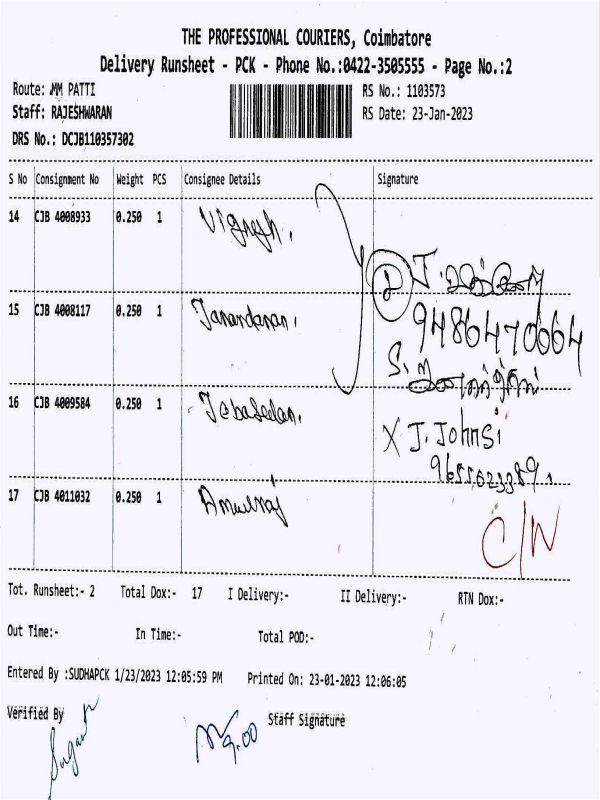 THE PROFESSIONAL COURIERS, Coimbatore
Delivery Runsheet - PCK - Phone No.:0422-3505555 - Page No.:2
Route: MM PATTI
RS No.: 1103573
Staff: RAJESHWARAN
RS Date: 23-Jan-2023
DRS No.: DCJB110357302
S No Consignment No Weight PCS Consignee Details Signature
14 CJB 4008933 0.250 1 Vignesh.
J.
15 CJB 4008117 0.250 1 Janandanan.
9486470064
S.
16 CJB 4009584 0.250 1 Jebaseelan.
X J. Johnsi
9655623389
17 CJB 4011032 0.250 1 Amulraj
C/N
Tot. Runsheet:- 2 Total Dox:- 17 I Delivery:- II Delivery:- RTN Dox:-
Out Time:- In Time:- Total POD:-
Entered By :SUDHAPCK 1/23/2023 12:05:59 PM Printed On: 23-01-2023 12:06:05
Verified By Staff Signature
9.00